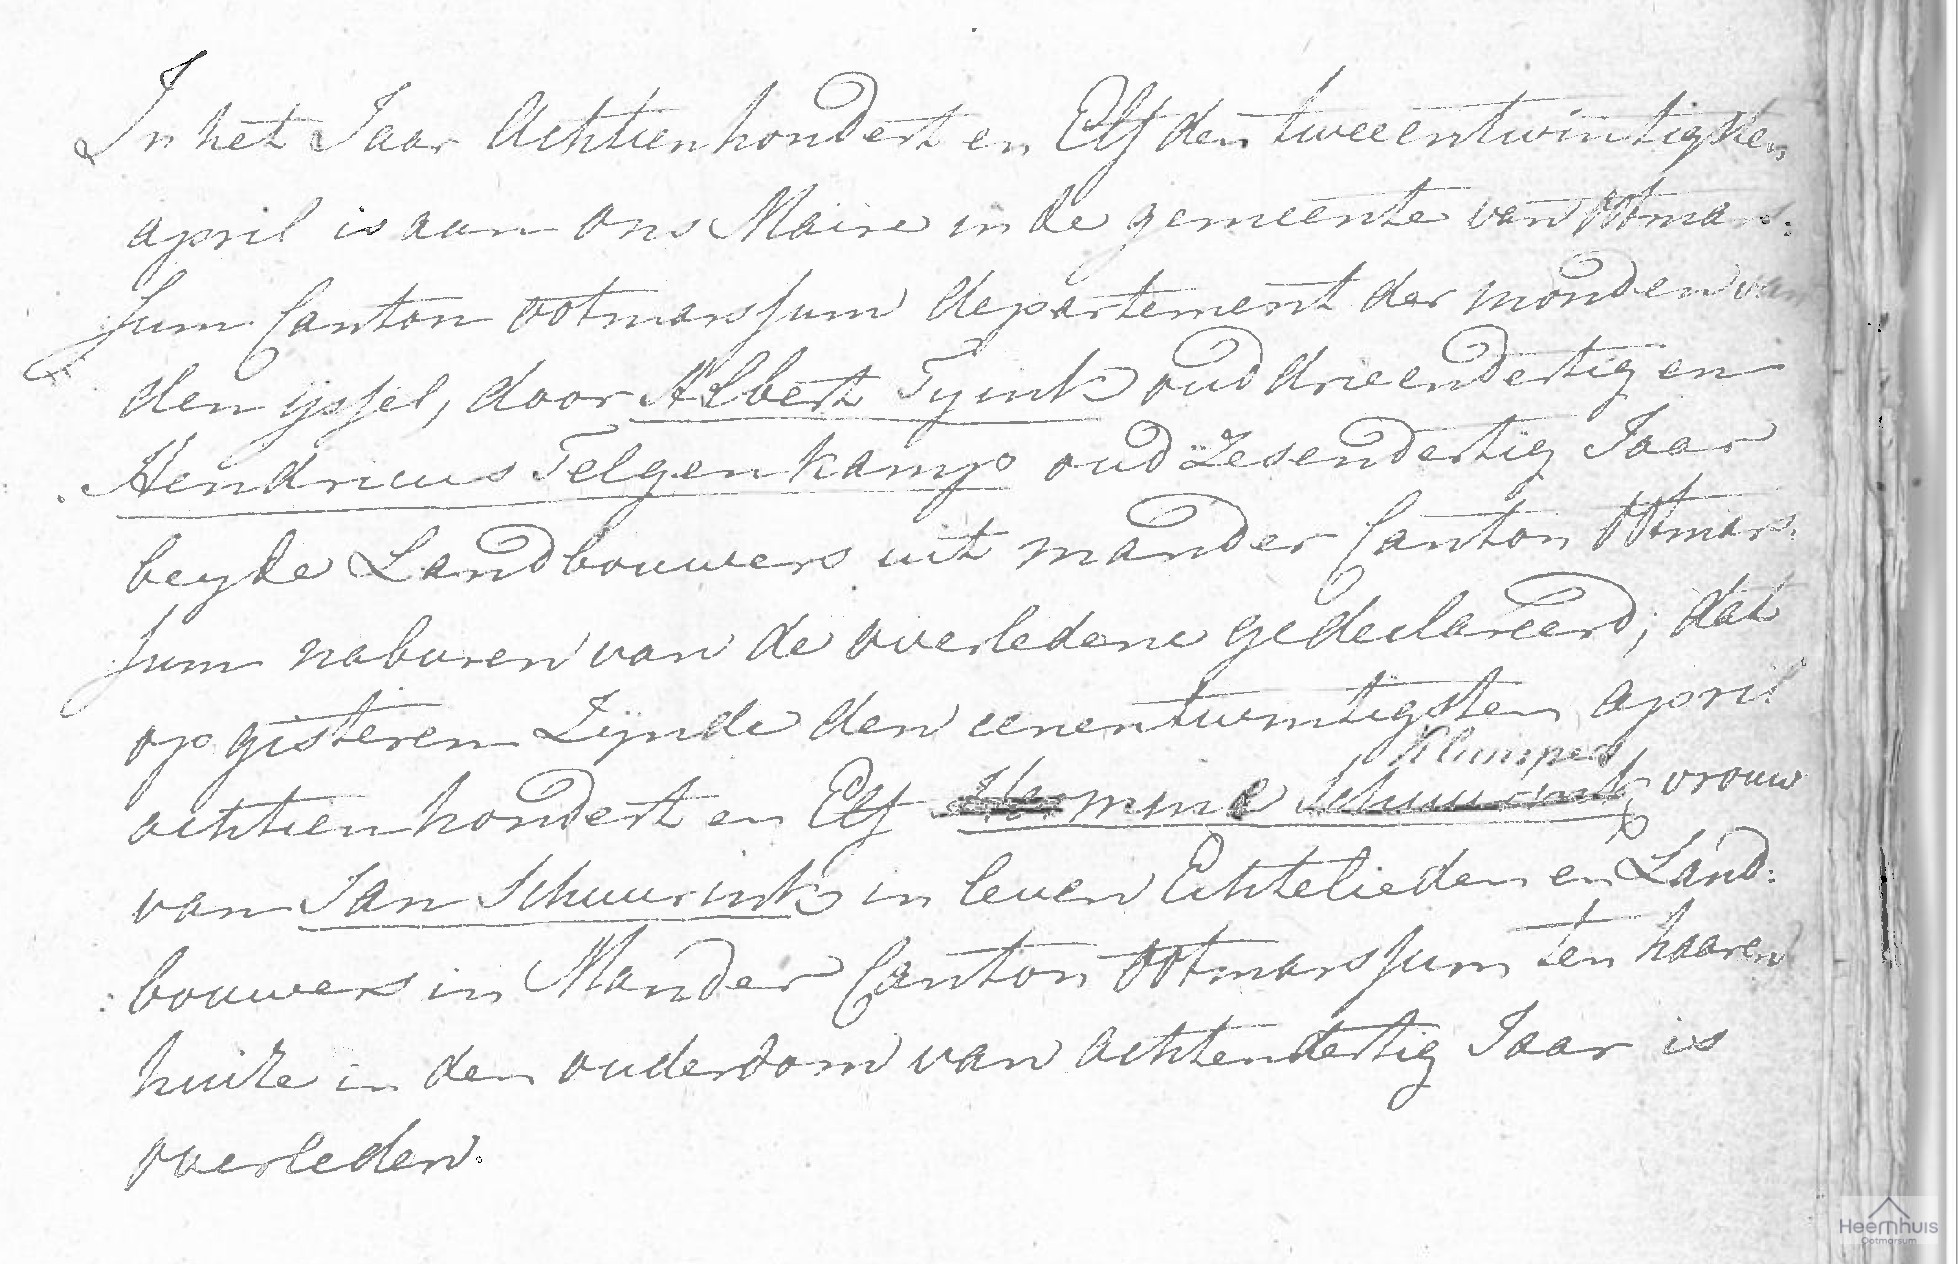 In het Jaar Achtienhondert en Elf den tweeentwintigsten
april is aan ons Maire in de gemeente van Ootmars:
sum Canton ootmarssum departement der monden van
den yssel, door Albert Tyink oud drieendertig en
Hendricus Telgenkamp oud Zesendertig Jaar
beyde Landbouwers uit mander Canton Ootmars:
sum naburen van de overledene gedeclareerd, dat
op gisteren Zynde den eenentwintigsten april
Klumpers
achtienhondert en Elf Hermine Schuurink vrouw
van Jan Schuurink in leven Echtelieden en Land:
:bouwers in Mander Canton Ootmarssum ten haaren
huize in den ouderdom van achtendertig Jaar is
overleden.
Heemhuis
Ootmarsum